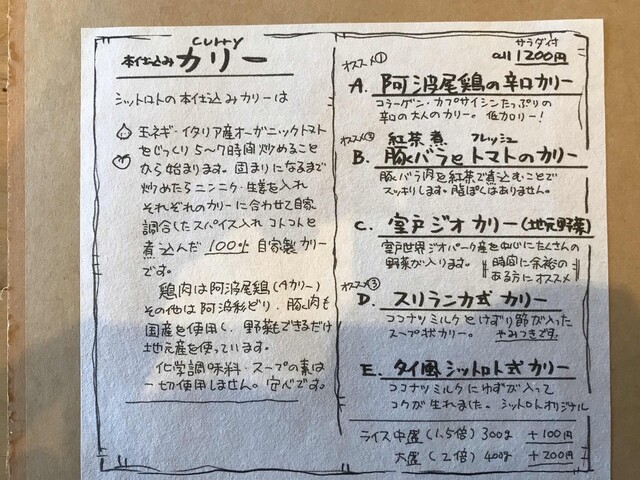 curry
本仕込み カリー
シットロトの本仕込みカリーは
玉ネギ・イタリア産オーガニックトマト
をじっくり5〜7時間炒めること
から始まります。固まりになるまで
炒めたらニンニク・生姜を入れ
それぞれのカリーに合わせて自家
調合したスパイス入れコトコトと
煮込んだ 100% 自家製カリー
です。
鶏肉は阿波尾鶏(Aカリー)
その他は阿波彩どり、豚肉も
国産を使用し、野菜もできるだけ
地元産を使っています。
化学調味料・スープの素は
一切使用しません。安心です。
サラダ付
all 1200円
オススメ①
A. 阿波尾鶏の辛口カリー
コラーゲン・カプサイシンたっぷりの
辛口の大人のカリー。低カロリー!
オススメ②
紅茶煮 フレッシュ
B. 豚バラとトマトのカリー
豚バラ肉を紅茶で煮込むことで
スッキリします。脂ぽくはありません。
C. 室戸ジオカリー(地元野菜)
室戸世界ジオパーク産を中心にたくさんの
野菜が入ります。
時間に余裕の
ある方にオススメ
オススメ③
D. スリランカ式カリー
ココナツミルクとけずり節が入った
スープ状カリー。やみつきです。
E. タイ風シットロト式カリー
ココナツミルクにゆずが入って
コクが生れました。シットロトオリジナル
ライス中盛(1.5倍)300g +100円
大盛(2倍)400g +200円